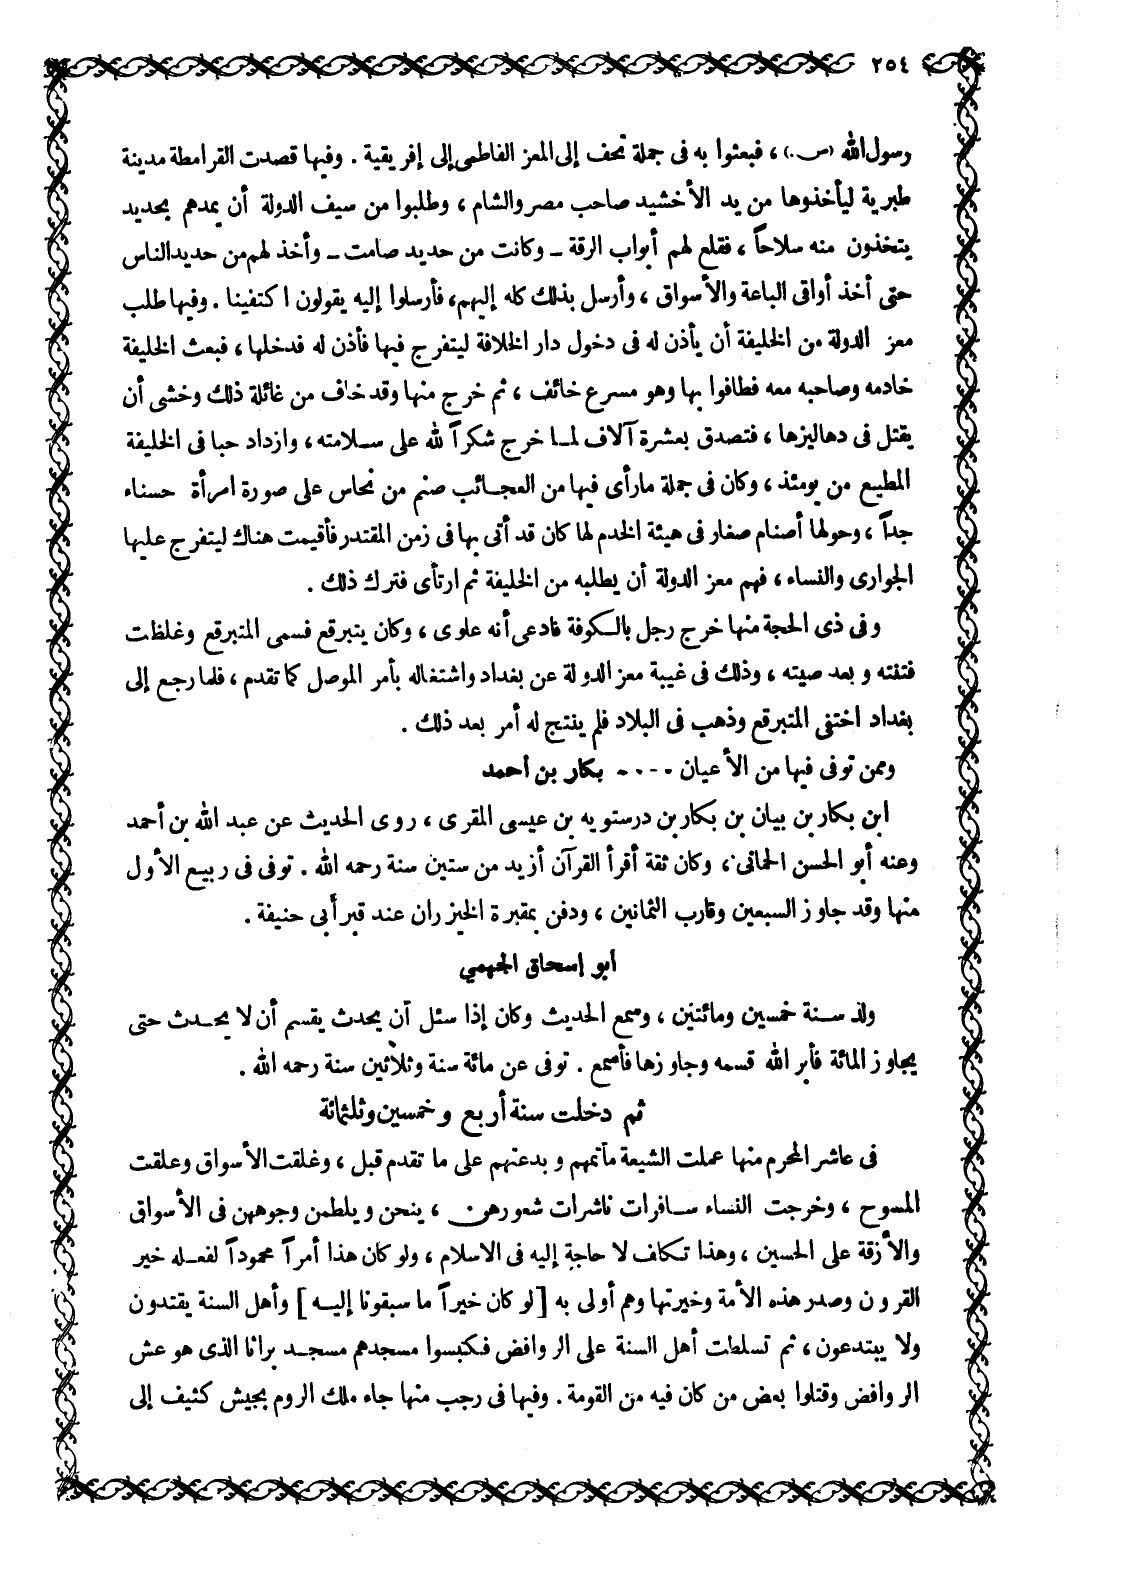 ٢٥٤
رسول الله (ص.)، فبعثوا به فى جملة تحف إلى المعز الفاطمى إلى إفريقية. وفيها قصدت القرامطة مدينة
طبرية ليأخذوها من يد الأخشيد صاحب مصر والشام، وطلبوا من سيف الدولة أن يمدهم بحديد
يتخذون منه سلاحاً، فقلع لهم أبواب الرقة ـ وكانت من حديد صامت ـ وأخذ لهم من حديد الناس
حتى أخذ أواقى الباعة والأسواق، وأرسل بذلك كله إليهم، فأرسلوا إليه يقولون اكتفينا. وفيها طلب
معز الدولة من الخليفة أن يأذن له فى دخول دار الخلافة ليتفرج فيها فأذن له فدخلها، فبعث الخليفة
خادمه وصاحبه معه فطافوا بها وهو مسرع خائف، ثم خرج منها وقد خاف من غائلة ذلك وخشى أن
يقتل فى دهاليزها، فتصدق بعشرة آلاف لما خرج شكراً لله على سلامته، وازداد حبا فى الخليفة
المطيع من يومئذ، وكان فى جملة مارأى فيها من العجائب صنم من نحاس على صورة امرأة حسناء
جداً، وحولها أصنام صغار فى هيئة الخدم لها كان قد أتى بها فى زمن المقتدر فأقيمت هناك ليتفرج عليها
الجوارى والنساء، فهم معز الدولة أن يطلبه من الخليفة ثم ارتأى فترك ذلك.
وفى ذى الحجة منها خرج رجل بالكوفة فادعى أنه علوى، وكان يتبرقع فسمى المتبرقع وغلظت
فتنته وبعد صيته، وذلك فى غيبة معز الدولة عن بغداد واشتغاله بأمر الموصل كما تقدم، فلما رجع إلى
بغداد اختفى المتبرقع وذهب فى البلاد فلم ينتج له أمر بعد ذلك.
وممن توفى فيها من الأعيان ---- بكار بن أحمد
ابن بكار بن بيان بن بكار بن درستويه بن عيسى المقرى، روى الحديث عن عبد الله بن أحمد
وعنه أبو الحسن الحمانى، وكان ثقة أقرأ القرآن أزيد من ستين سنة رحمه الله. توفى فى ربيع الأول
منها وقد جاوز السبعين وقارب الثمانين، ودفن بمقبرة الخيزران عند قبر أبى حنيفة.
أبو إسحاق الجهمي
ولد سنة خمسين ومائتين، وسمع الحديث وكان إذا سئل أن يحدث يقسم أن لا يحدث حتى
يجاوز المائة فأبر الله قسمه وجاوزها فأسمع. توفى عن مائة سنة وثلاثين سنة رحمه الله.
ثم دخلت سنة أربع وخمسين وثلثمائة
فى عاشر المحرم منها عملت الشيعة مآتمهم وبدعتهم على ما تقدم قبل، وغلقت الأسواق وعلقت
المسوح، وخرجت النساء سافرات ناشرات شعورهن، ينحن ويلطمن وجوههن فى الأسواق
والأزقة على الحسين، وهذا تكلف لا حاجة إليه فى الاسلام، ولو كان هذا أمراً محموداً لفعله خير
القرون وصدر هذه الأمة وخيرتها وهم أولى به [لو كان خيراً ما سبقونا إليه] وأهل السنة يقتدون
ولا يبتدعون، ثم تسلطت أهل السنة على الروافض فكبسوا مسجدهم مسجد براثا الذى هو عش
الروافض وقتلوا بعض من كان فيه من القومة. وفيها فى رجب منها جاء ملك الروم بجيش كثيف إلى